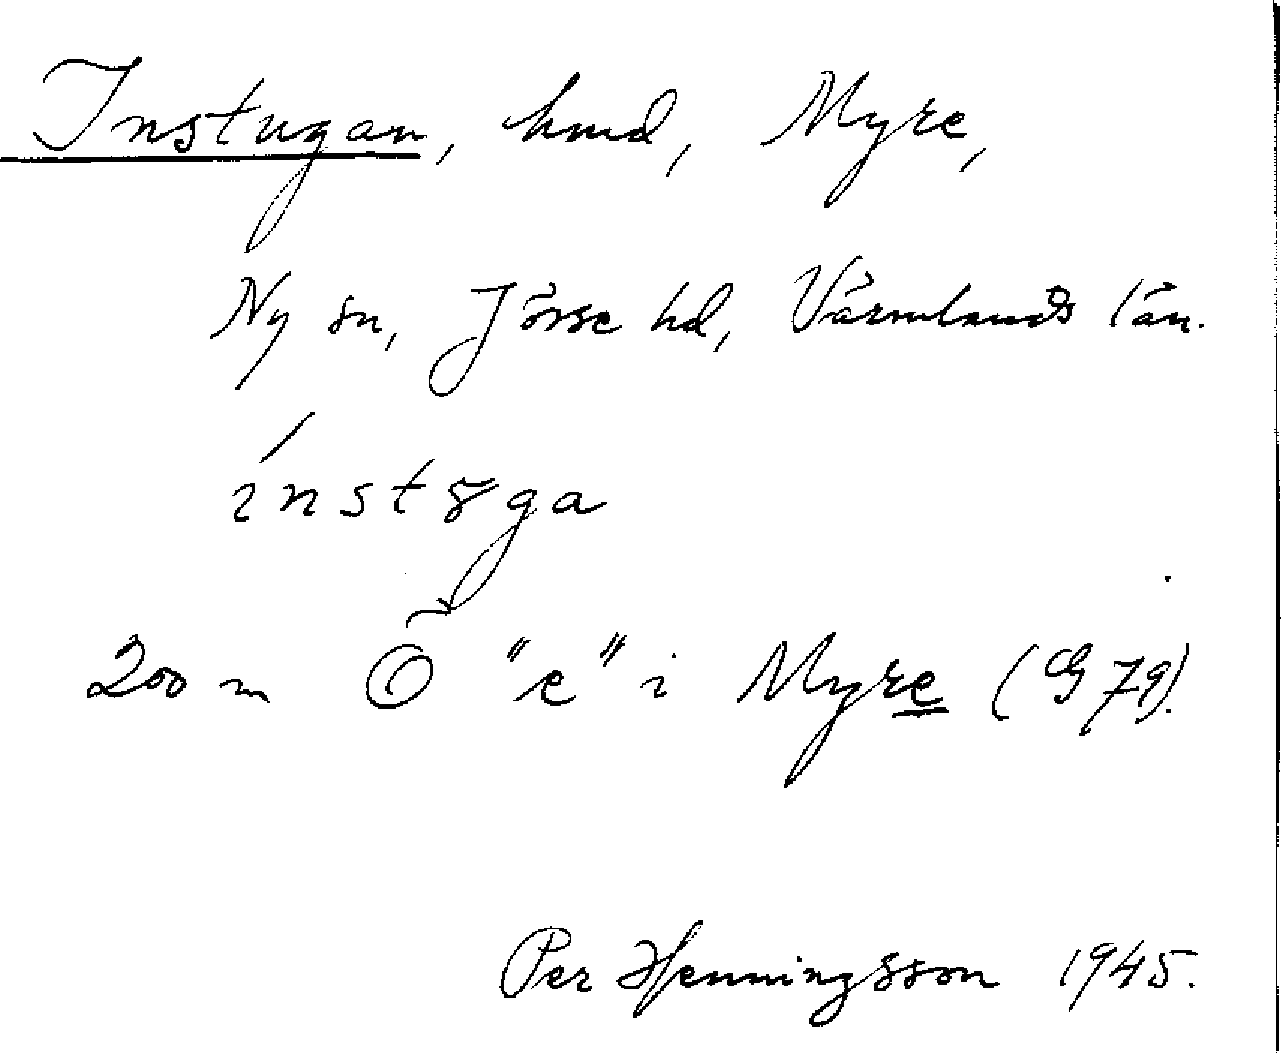 Instugan, hmd, Myre,
Ny sn, Jösse hd, Värmlands län.
ínstŏga
200 m Ö "e" i Myre (G 79).
Per Henningsson 1945.